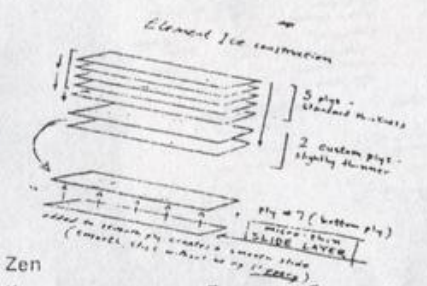 Element Ice construction
5 plys -
standard thickness
2 custom plys -
slightly thinner
ply #7 (bottom ply)
micro-thin
SLIDE LAYER
added to seventh ply creates a smooth slide
(smooth, slick without
Zen